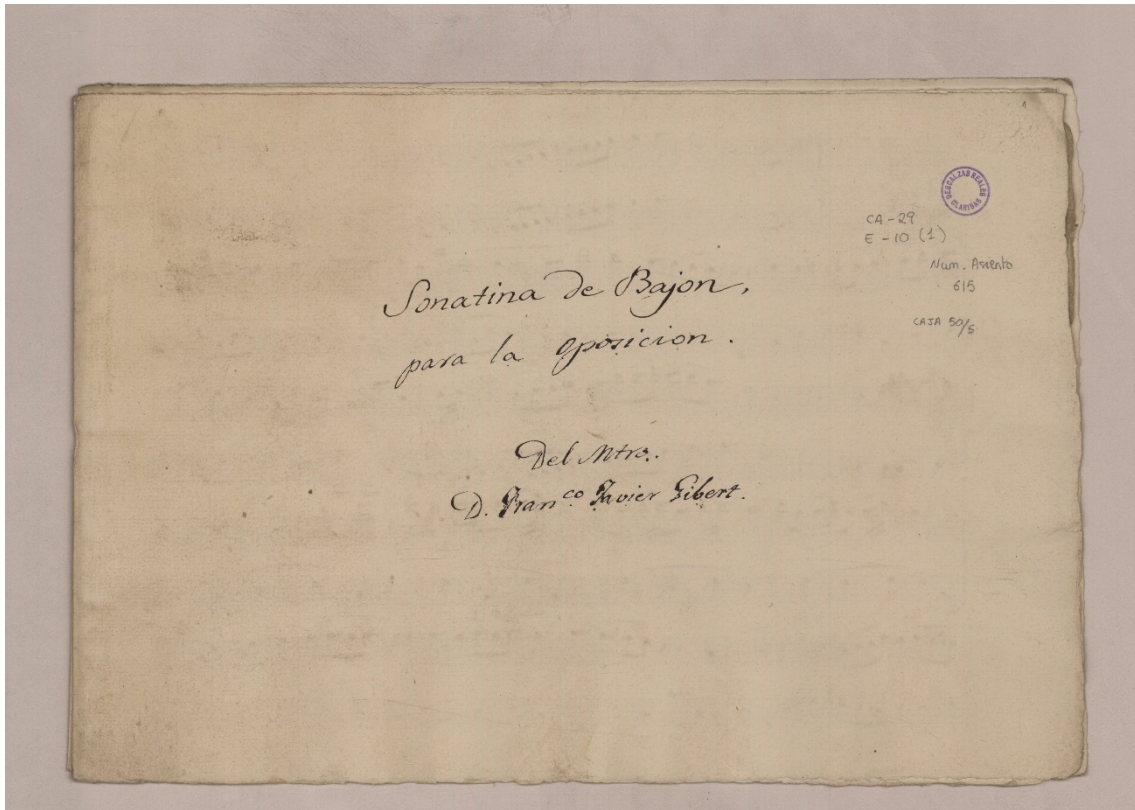 DESCALZAS REALES
CLARISAS
CA-29
E-10 (1)
Num. Asiento
615
CAJA 50/5
Sonatina de Bajon,
para la oposicion.
Del Mtro.
D. Fran.co Javier Gibert.